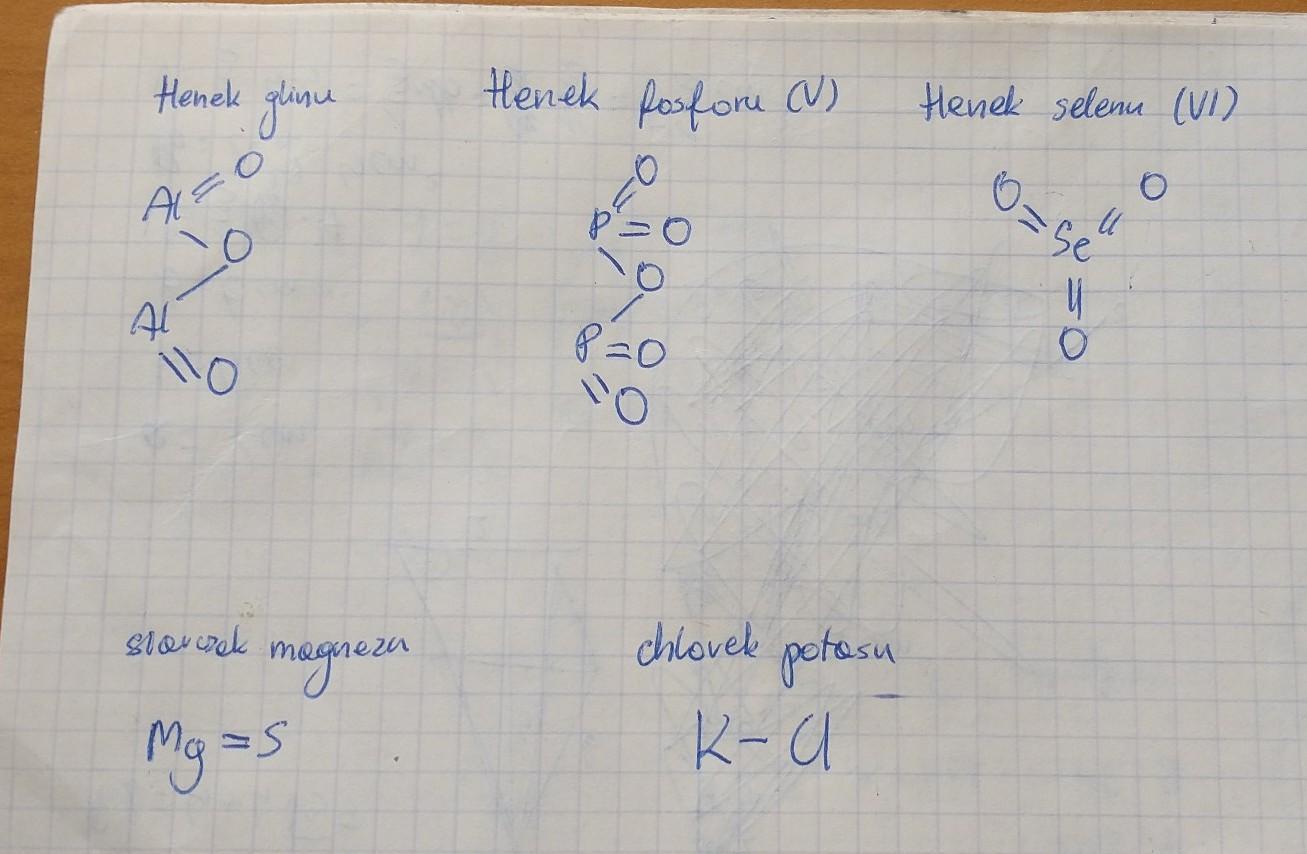 tlenek glinu tlenek fosforu (V) tlenek selenu (VI)
Al = O
\ O
Al /
\\ O
O
P = O
\ O
P = O
\\ O
O = Se = O
||
O
siarczek magnezu chlorek potasu
Mg = S K - Cl